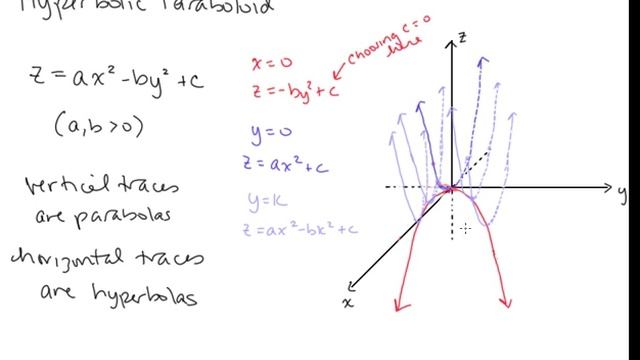 Hyperbolic Paraboloid
z = ax² - by² + c
(a,b >0)
vertical traces
are parabolas
horizontal traces
are hyperbolas
x = 0
z = -by² + c
choosing c=0
here
y = 0
z = ax² + c
y = k
z = ax² - bk² + c
z
y
x